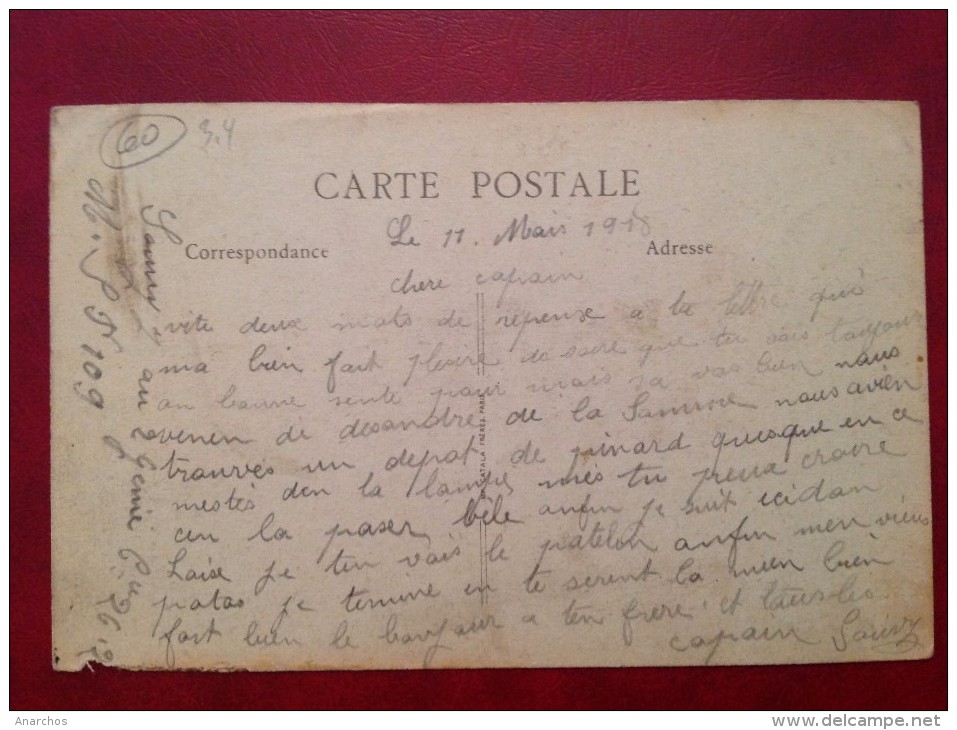 60
3.4
CARTE POSTALE
Correspondance
Le 11. Mais 1918
Adresse
chere capain
vite deux mots de repense a ta lettre qui
ma bien fait plesire je soire que tu vais toujour
an banne sente pour mais sa vas bien nous
venen de desandre de la Samme nous avien
trauvés un depat de pinard quesque en ce
mestés den la lampe mes tu peux craire
cen la paser bele anfin je suit ici dan
Laise je ten vais le patelon anfin mon vieus
patas je termine en te serent la mien bien
fort bien le bonjour a ten frere et taus les
capain Saury
Saury au 2 Genie
109
EDIT. CATALA FRÈRES PARIS
Anarchos
www.delcampe.net